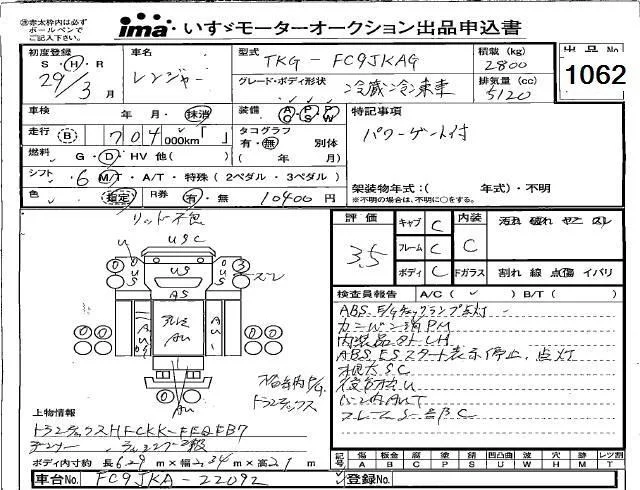 ㊟赤太枠内は必ずボールペンでご記入下さい。
ima・いすゞモーターオークション出品申込書
出品No
1062
初度登録 S・H・R 29/3月
車名 レンジャー
型式 TKG-FC9JKAG
積載(kg) 2800
グレード・ボディ形状 冷蔵冷凍車
排気量(cc) 5120
車検 年・月・抹消
装備 AC PS PW
特記事項
パワーゲート付
走行 B 704 000km「 」
タコグラフ 有・無 別体 ( 年 月)
燃料 G・D・HV 他( )
シフト 6 MT・A/T・特殊(2ペダル・3ペダル)
架装物年式:( 年式)・不明
※不明の場合は、不明に○をする。
色 指定
R券 有・無 10400円
評価 3.5
キャブ C
フレーム C
ボディ C
内装 C
汚れ 破れ ヤニ スレ
Fガラス 割れ 線 点傷 イバリ
検査員報告 A/C( ✓ ) B/T( )
ABS E/Gチェックランプ点灯
内装品外LH
ABS ESスタート表示停止、点灯
U
USC
US
US
US
AS
アルミ
AU
AU
AU
AU
スレ
トランテックス
上物情報
トランテックスHFCKK-FEQFB7
ボディ内寸約 長6.29m×幅2.34m×高2.1m
記号 傷A 板金B 腐C 塗P 錆S 凹凸曲U 波W 穴H 跡M レンズ割T
車台No. FC9JKA-22092
登録No.